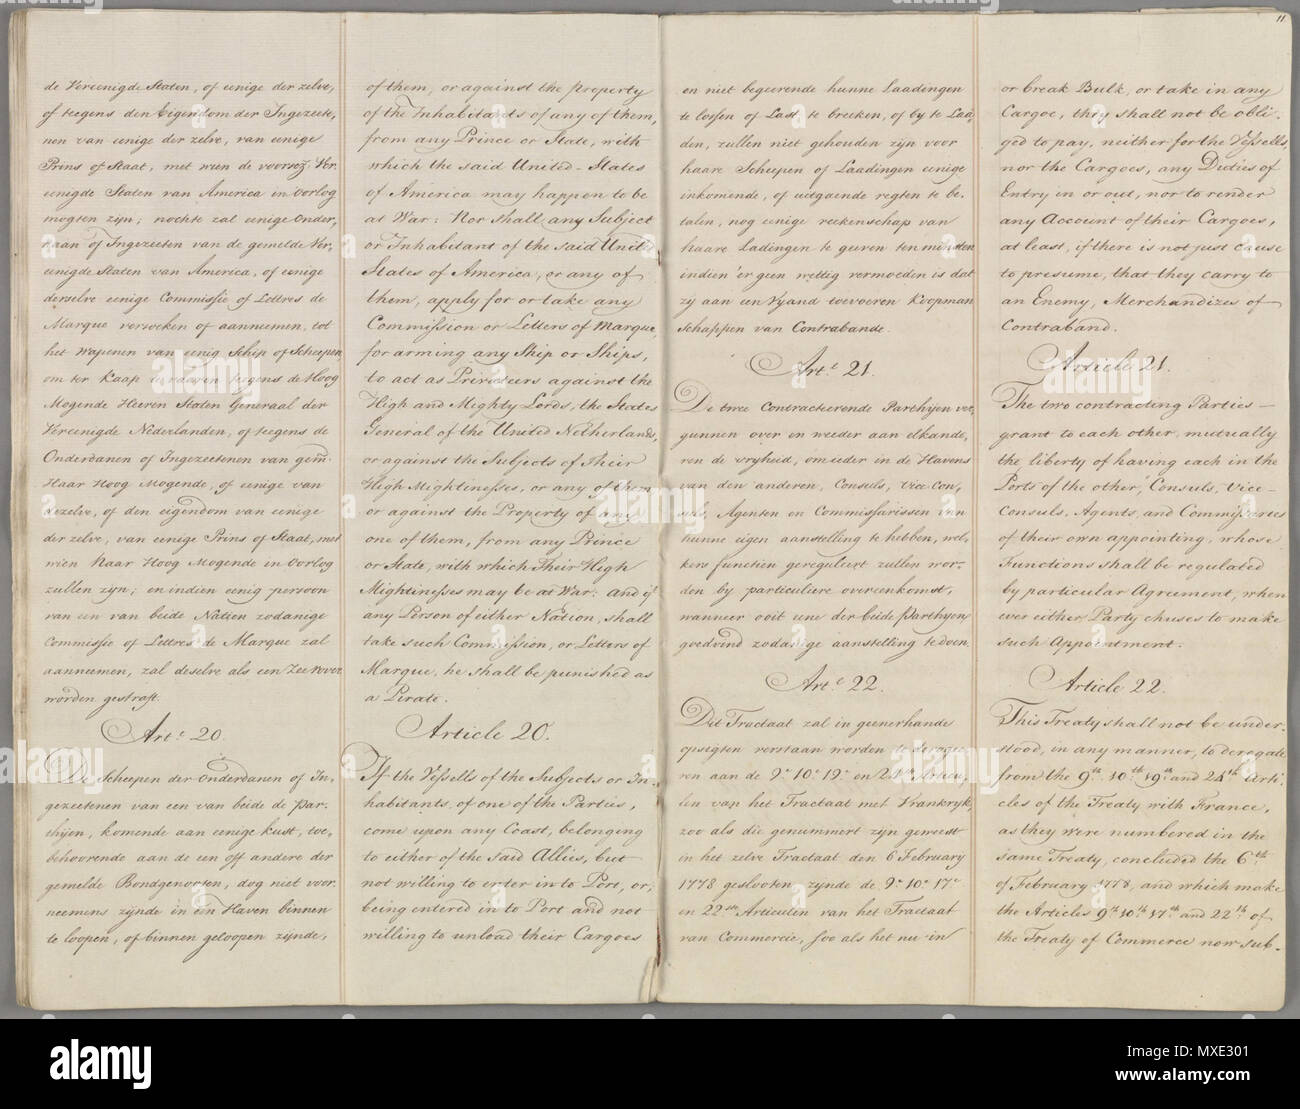 11
de Vereenigde Staten, of eenige der zelve,
of teegens den Eigendom der Ingezeete,
nen van eenige der zelve, van eenige
Prins of Staat, met wien de voorsoz. Ver
eenigde Staten van America in Oorlog
mogten zijn; nochte zal eenige Onder,
daan of Ingezeeten van de gemelde Ver,
eenigde Staten van America, of eenige
derselve eenige Commissie of Lettres de
Marque versoeken of aannemen, tot
het wapenen van eenig Schip of Scheepen
om ter Kaap te vaaren teegens de Hoog
Mogende Heeren Staten Generaal der
Vereenigde Nederlanden, of teegens de
Onderdanen of Ingezeetenen van gem.
Haar Hoog Mogende, of eenige van
dezelve, of den eigendom van eenige
der zelve, van eenige Prins of Staat, met
wien Haar Hoog Mogende in Oorlog
zullen zijn; en indien eenig persoon
van een van beide Natien zodanige
Commissie of Lettres de Marque zal
aannemen, zal deselve als een Zee rover
worden gestraft.
Art.e 20.
De Scheepen der Onderdanen of In,
gezeetenen van een van beide de par,
thijen, komende aan eenige kust, toe,
behoorende aan de een off andere der
gemelde Bondgenooten, dog niet voor
neemens zijnde in een Haven binnen
te loopen, of binnen geloopen zijnde,
of them, or against the property
of the Inhabitants of any of them,
from any Prince or State, with
which the said United-States
of America may happen to be
at War: Nor shall any Subject
or Inhabitant of the said United
States of America, or any of
them, apply for or take any
Commission or Letters of Marque,
for arming any Ship or Ships,
to act as Privateers against the
High and Mighty Lords, the States
General of the United Netherlands,
or against the Subjects of Their
High Mightinesses, or any of them
or against the Property of any
one of them, from any Prince
or State, with which Their High
Mightinesses may be at War: and if
any Person of either Nation, shall
take such Commission, or Letters of
Marque, he shall be punished as
a Pirate.
Article 20.
If the Vessells of the Subjects or In,
habitants, of one of the Parties,
come upon any Coast, belonging
to either of the said Allies, but
not willing to enter in to Port, or,
being entered in to Port and not
willing to unload their Cargoes
en niet begeerende hunne Laadingen
te lossen of Last te breeken, of by te Laa,
den, zullen niet gehouden zijn voor
haare Scheepen of Laadingen eenige
inkomende, of uitgaende regten te be,
talen, nog eenige reekenschap van
haare Ladingen te geeven ten minsten
indien 'er geen wettig vermoeden is dat
zij aan een Vyand toevoeren Koopman
schappen van Contrabande.
Art.e 21.
De twee Contracteerende Parthijen ver,
gunnen over en weeder aan elkande,
ren de vryheid, om ieder in de Havens
van den anderen, Consuls, Vice Con,
suls, Agenten en Commissarissen van
hunne eigen aanstelling te hebben, wel,
kers functien gereguleert zullen wor,
den by particuliere overeenkomst,
wanneer ooit eene der beide Parthyen
goedvind zodanige aanstelling te doen.
Art.e 22.
Dit Tractaat zal in geenerhande
opsigten verstaan worden te derogee
ren aan de 9.e 10.e 19.e en 24.ste Articu,
len van het Tractaat met Vrankryk,
zoo als die genummert zijn geweest
in het zelve Tractaat den 6 February
1778 geslooten, zynde de 9.e 10.e 17.e
en 22.ste Articulen van het Tractaat
van Commercie, soo als het nu in
or break Bulk, or take in any
Cargoe, they shall not be obli-
ged to pay, neither for the Vessells,
nor the Cargoes, any Duties of
Entry in or out, nor to render
any Account of their Cargoes,
at least, if there is not just cause
to presume, that they carry to
an Enemy, Merchandizes of
Contraband.
Article 21.
The two contracting Parties —
grant to each other, mutually
the liberty of having each in the
Ports of the other, Consuls, Vice-
Consuls, Agents, and Commissaries
of their own appointing, whose
Functions shall be regulated
by particular Agreement, when
ever either Party chuses to make
such Appointment.
Article 22.
This Treaty shall not be under-
stood, in any manner, to derogate
from the 9.th 10.th 19.th and 24.th Arti
cles of the Treaty with France,
as they were numbered in the
same Treaty, concluded the 6.th
of February 1778, and which make
the Articles 9.th 10.th 17.th and 22.th of
the Treaty of Commerce now sub-
alamy
Image ID: MXE301
www.alamy.com